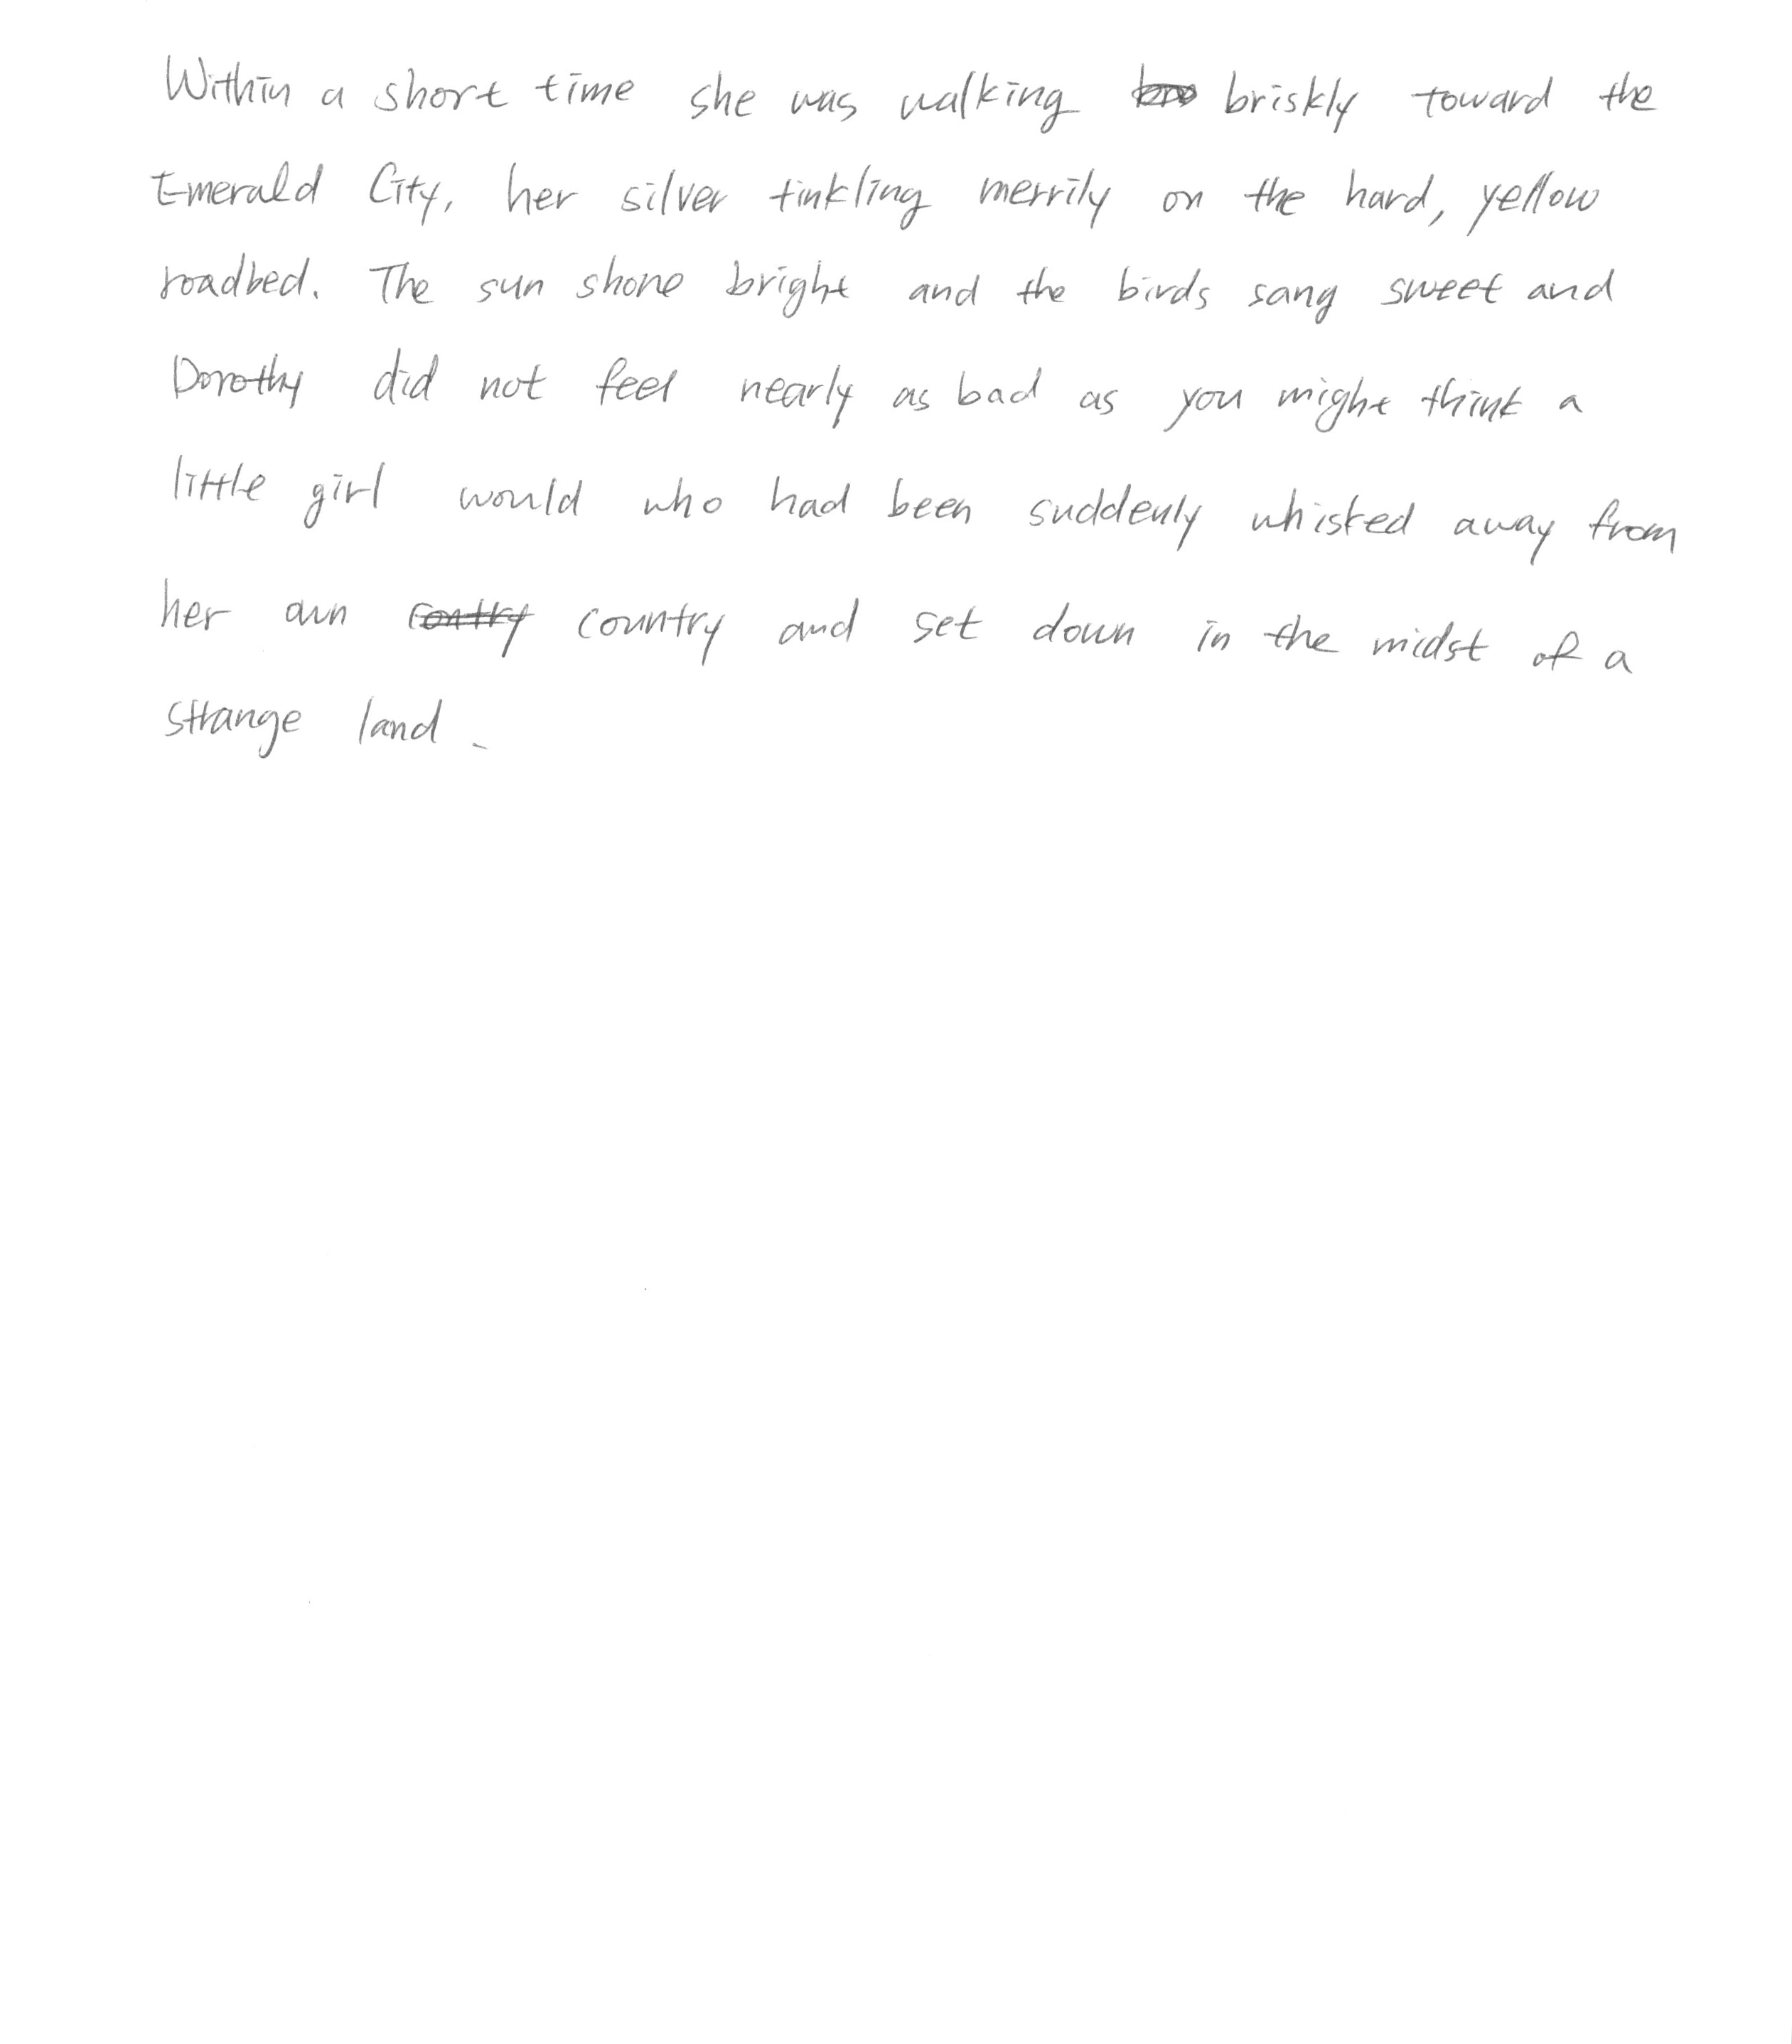 Within a short time she was walking briskly toward the
Emerald City, her silver tinkling merrily on the hard, yellow
roadbed. The sun shone bright and the birds sang sweet and
Dorothy did not feel nearly as bad as you might think a
little girl would who had been suddenly whisked away from
her own contry country and set down in the midst of a
strange land.